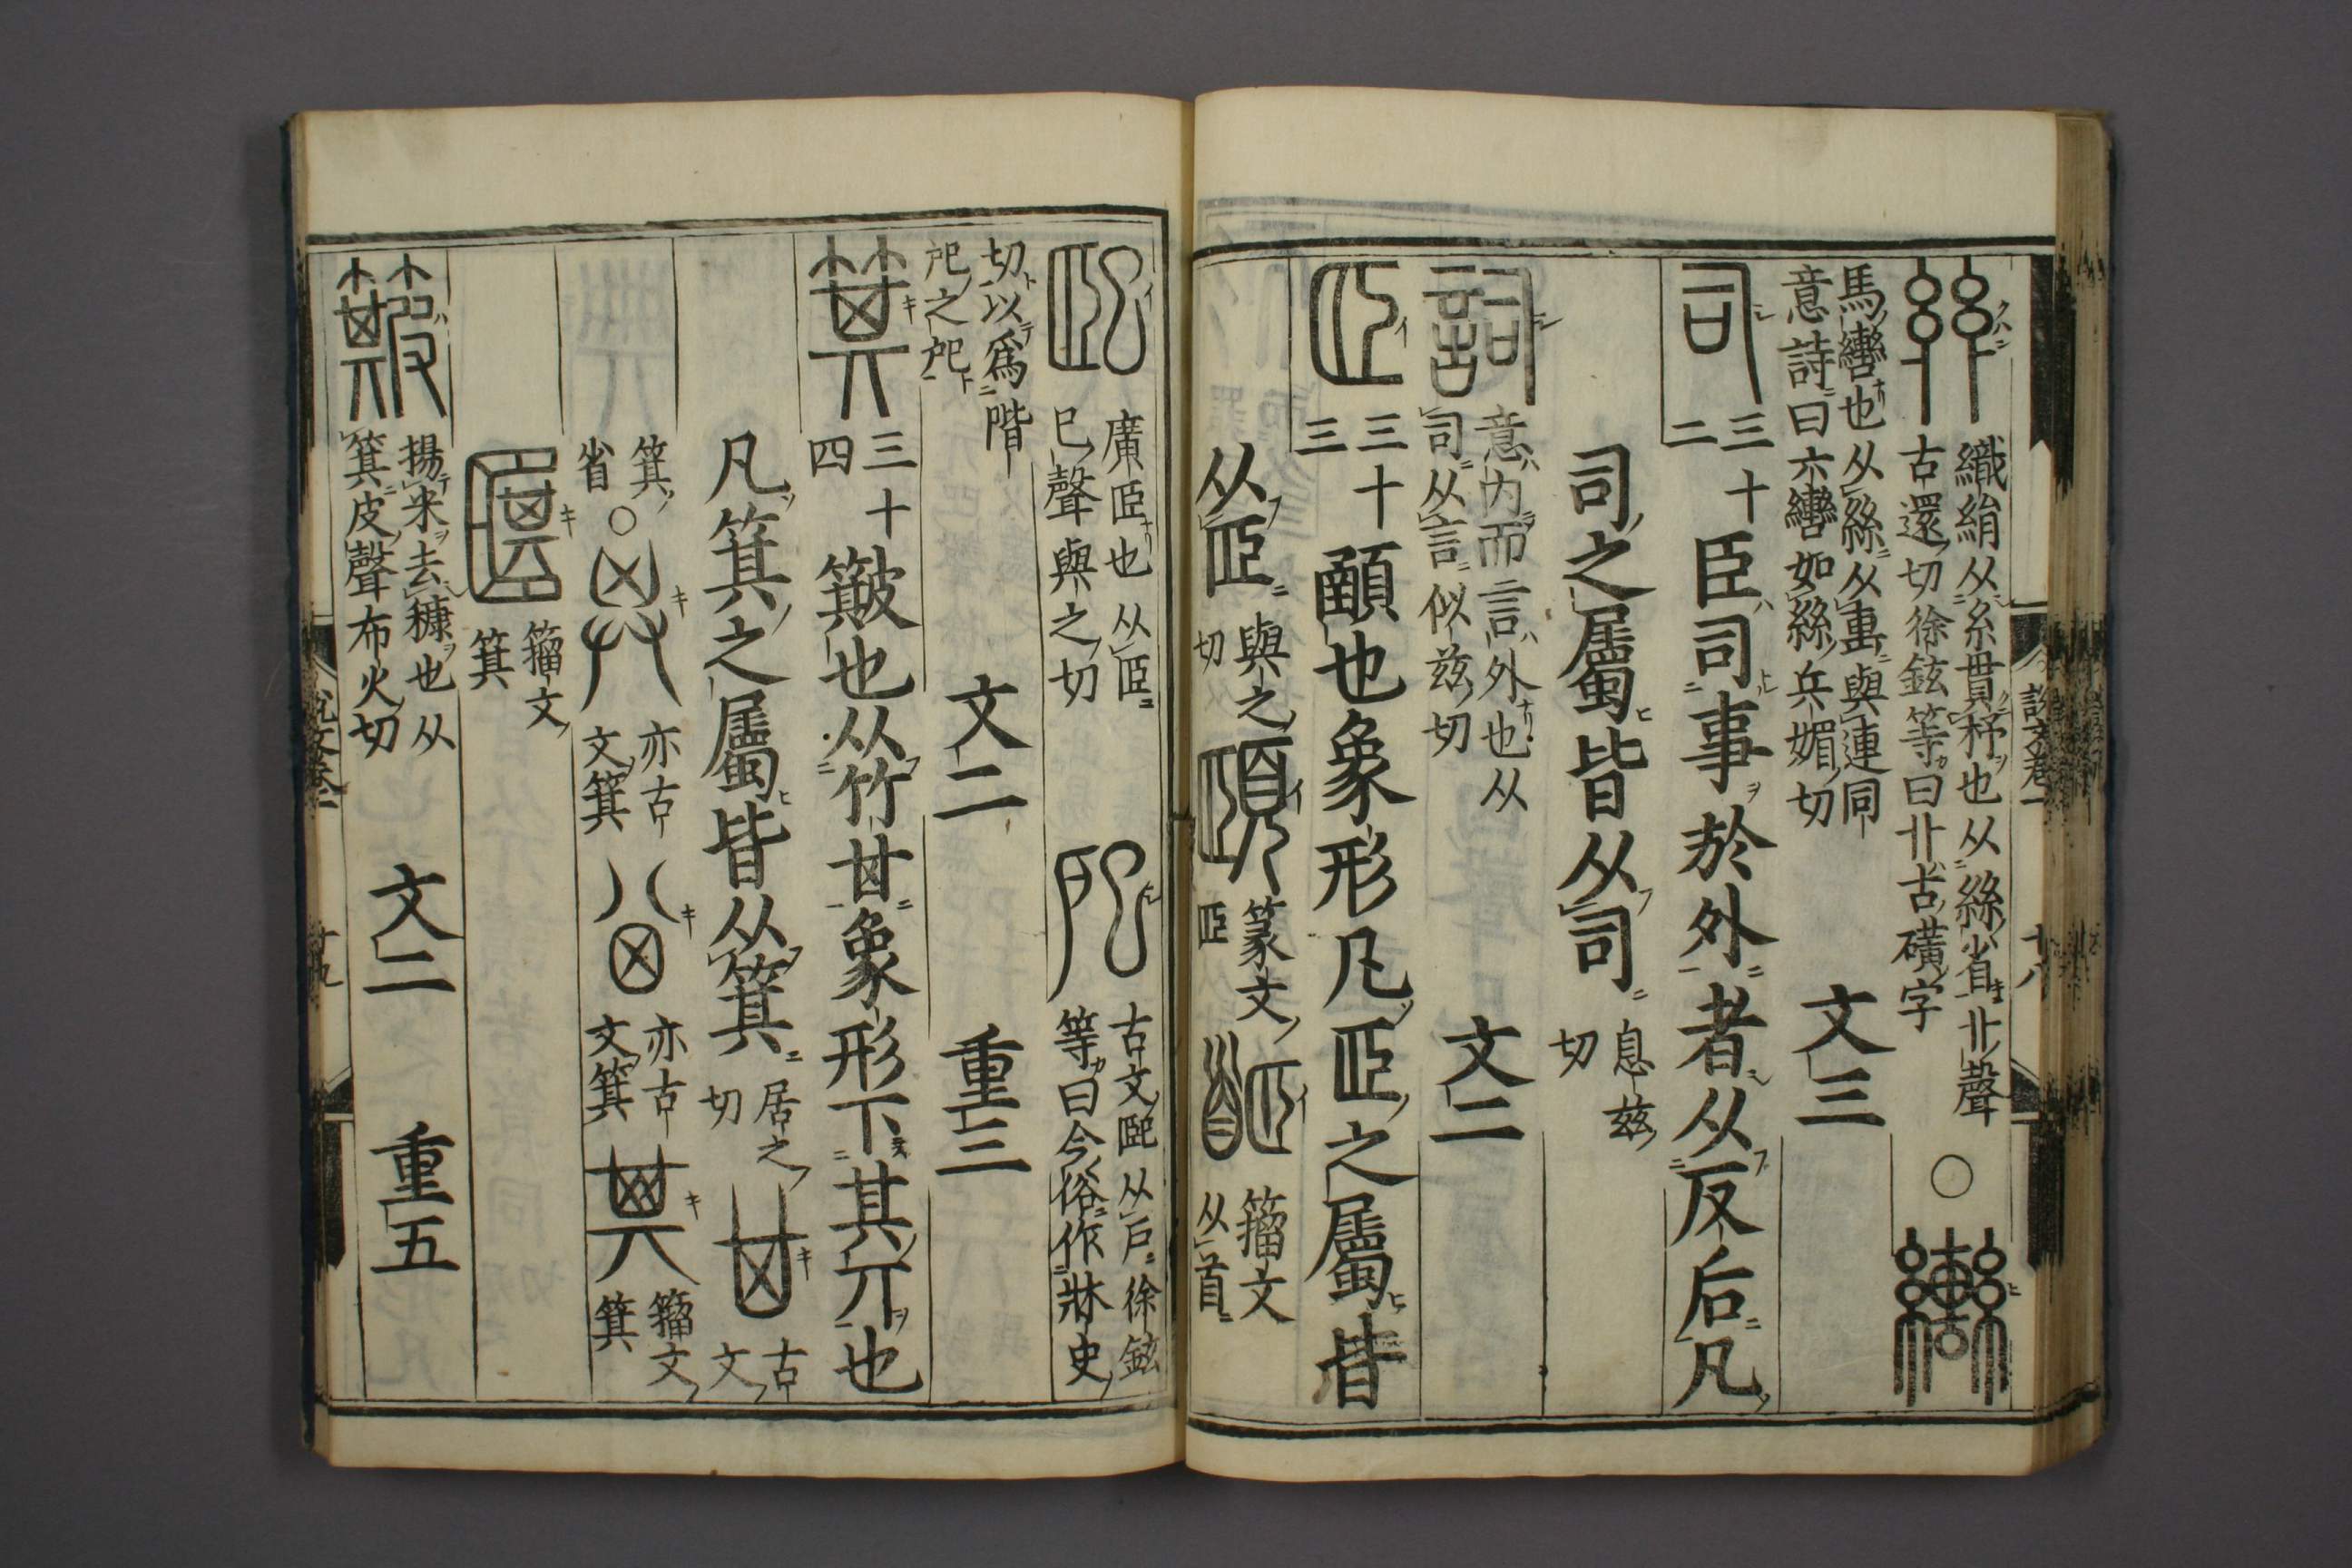 織絹从糸貫杼也从絲省丱聲
古還切徐鉉等曰丱古磺字
○
馬轡也从絲从軎與連同
意詩曰六轡如絲兵媚切
文三
司
三十二
臣司事於外者从反后凡
司之屬皆从司
息兹切
詞
意内而言外也从
司从言似兹切
文二
𦣞
三十三
顄也象形凡𦣞之屬皆
从𦣞
與之切
頤
篆文𦣞
籀文从首
說文卷一
十八
廣𦣞也从𦣞
巳聲與之切
古文巸从戶徐鉉
等曰今俗作牀史
切以爲階
戺之戺
文二
重三
箕
三十四
簸也从竹𠀠象形下其丌也
凡箕之屬皆从箕
居之切
古文
箕省
○
亦古文箕
亦古文箕
籀文箕
籀文箕
簸
揚米去糠也从
箕皮聲布火切
文二
重五
說文卷一
十九